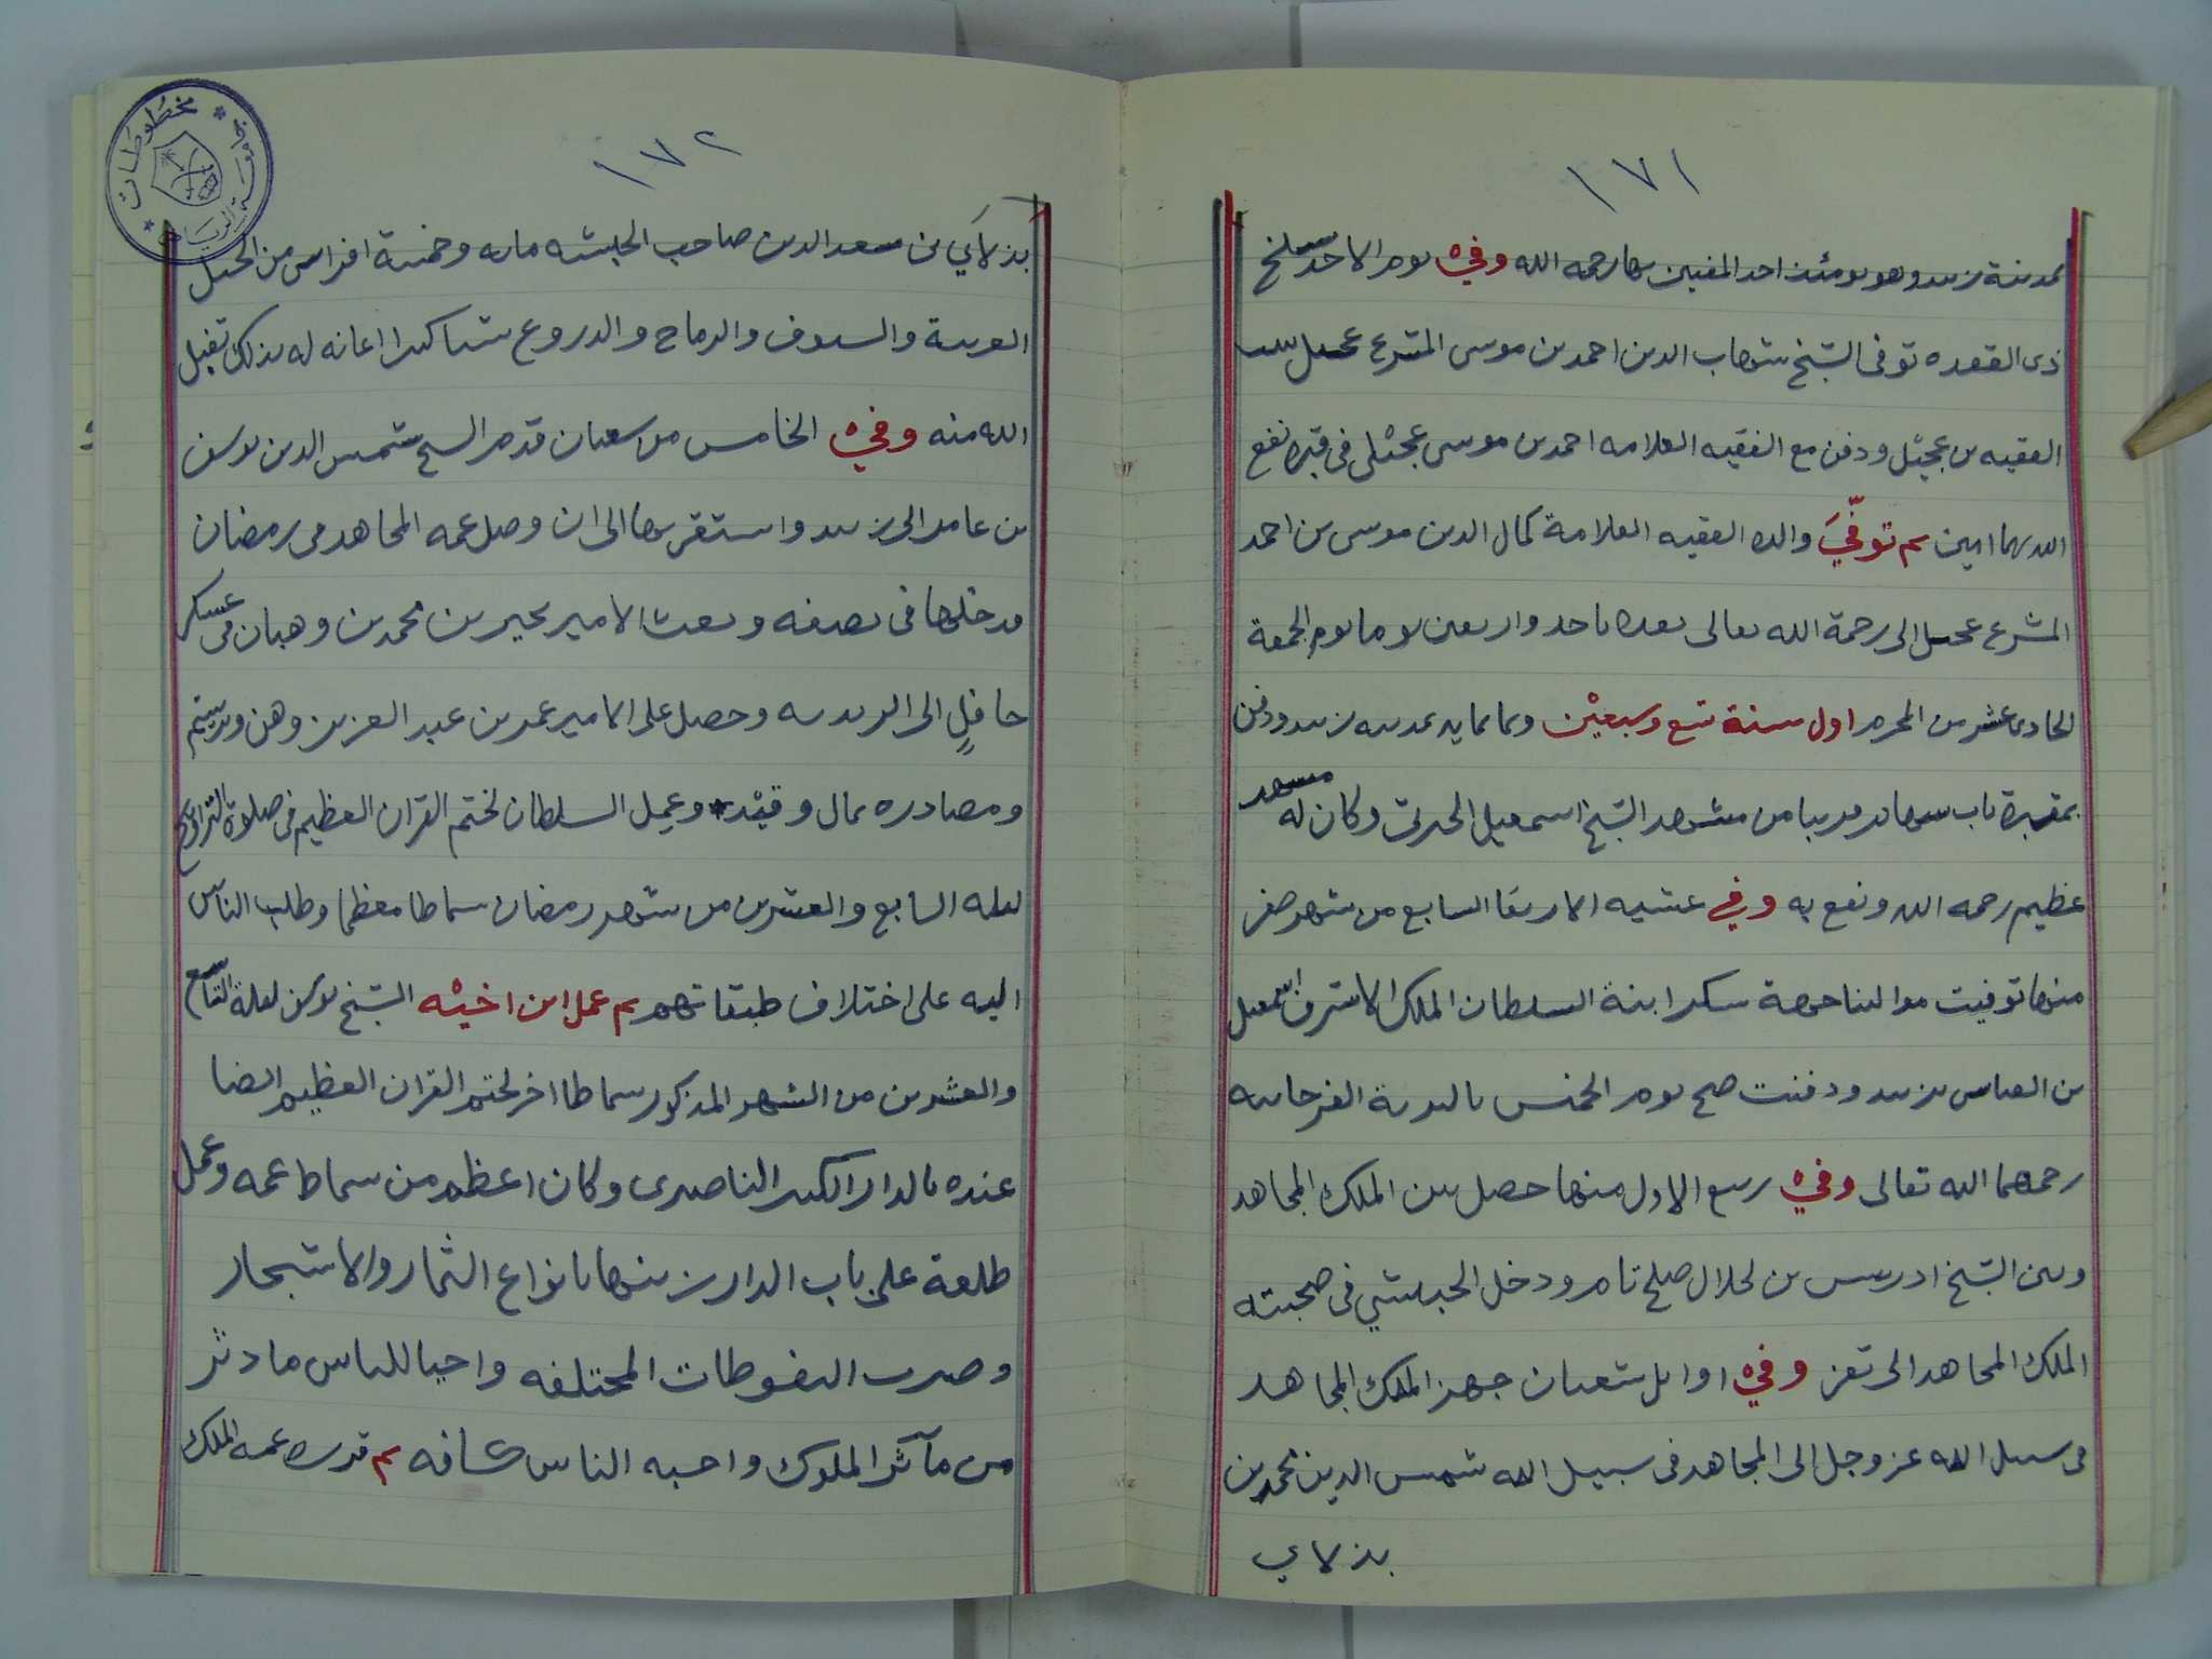 ١٧١
بمدينة زبيد وهو يومئذ احد المفتين بها رحمه الله وفي يوم الاحد سلخ
ذى القعده توفى الشيخ شهاب الدين احمد بن موسى المشرع عجيل
الفقيه بن عجيل ودفن مع الفقيه العلامه احمد بن موسى عجيل فى قبره نفع
الله بهما امين ثم توفي والده الفقيه العلامة كمال الدين موسى بن احمد
المشرع عجيل الى رحمة الله تعالى بعده باحد واربعين يوما يوم الجمعة
الحادى عشر من المحرم اول سنة تسع وسبعين وثمانمايه بمدينه زبيد ودفن
بمقبرة باب سهام قريبا من مشهد الشيخ اسمعيل الجبرتى وكان له مشهد
عظيم رحمه الله ونفع به وفي عشيه الاربعا السابع من شهر صفر
منها توفيت مولاتنا جهة شكر ابنة السلطان الملك الاشرف اسمعيل
بن العباس بزبيد ودفنت صبح يوم الخميس بالتربة الفرحانيه
رحمهما الله تعالى وفي ربيع الاول منها حصل بين الملك المجاهد
وبين الشيخ ادريس بن لجلال صلح تام ودخل الحبيشي فى صحبته
الملك المجاهد الى تعز وفي اوايل شعبان جهز الملك المجاهد
فى سبيل الله عز وجل الى المجاهد فى سبيل الله شمس الدين محمد بن
بذلاي
١٧٢
بذلاي بن سعد الدين صاحب الحبشه مايه وخمسة افراس من الخيل
العربية والسيوف والرماح والدروع شيا كثيرا اعانه له بذلك تقبل
الله منه وفي الخامس من شعبان قدم الشيخ شمس الدين يوسف
بن عامر الى زبيد واستقر بها الى ان وصل عمه المجاهد فى رمضان
فدخلها فى نصفه وبعث الامير بحير بن محمد بن وهبان فى عسكر
حافلٍ الى الزيديه وحصل على الامير عمر بن عبد العزيز وهن وترسيم
ومصادره بمال وقيد وعمل السلطان لختم القران العظيم فى صلوة التراويح
ليله السابع والعشرين من شهر رمضان سماطا معظما وطلب الناس
اليه على اختلاف طبقاتهم ثم عمل ابن اخيه الشيخ يوسف ليلة التاسع
والعشرين من الشهر المذكور سماطا اخر لختم القران العظيم ايضا
عنده بالدار الكبير الناصرى وكان اعظم من سماط عمه وعمل
طلعة على باب الدار زينها بانواع الثمار والاشجار
وصرب النفوطات المختلفه واحيا للناس ما دثر
من مآثر الملوك واحبه الناس كافه ثم قدره عمه الملك